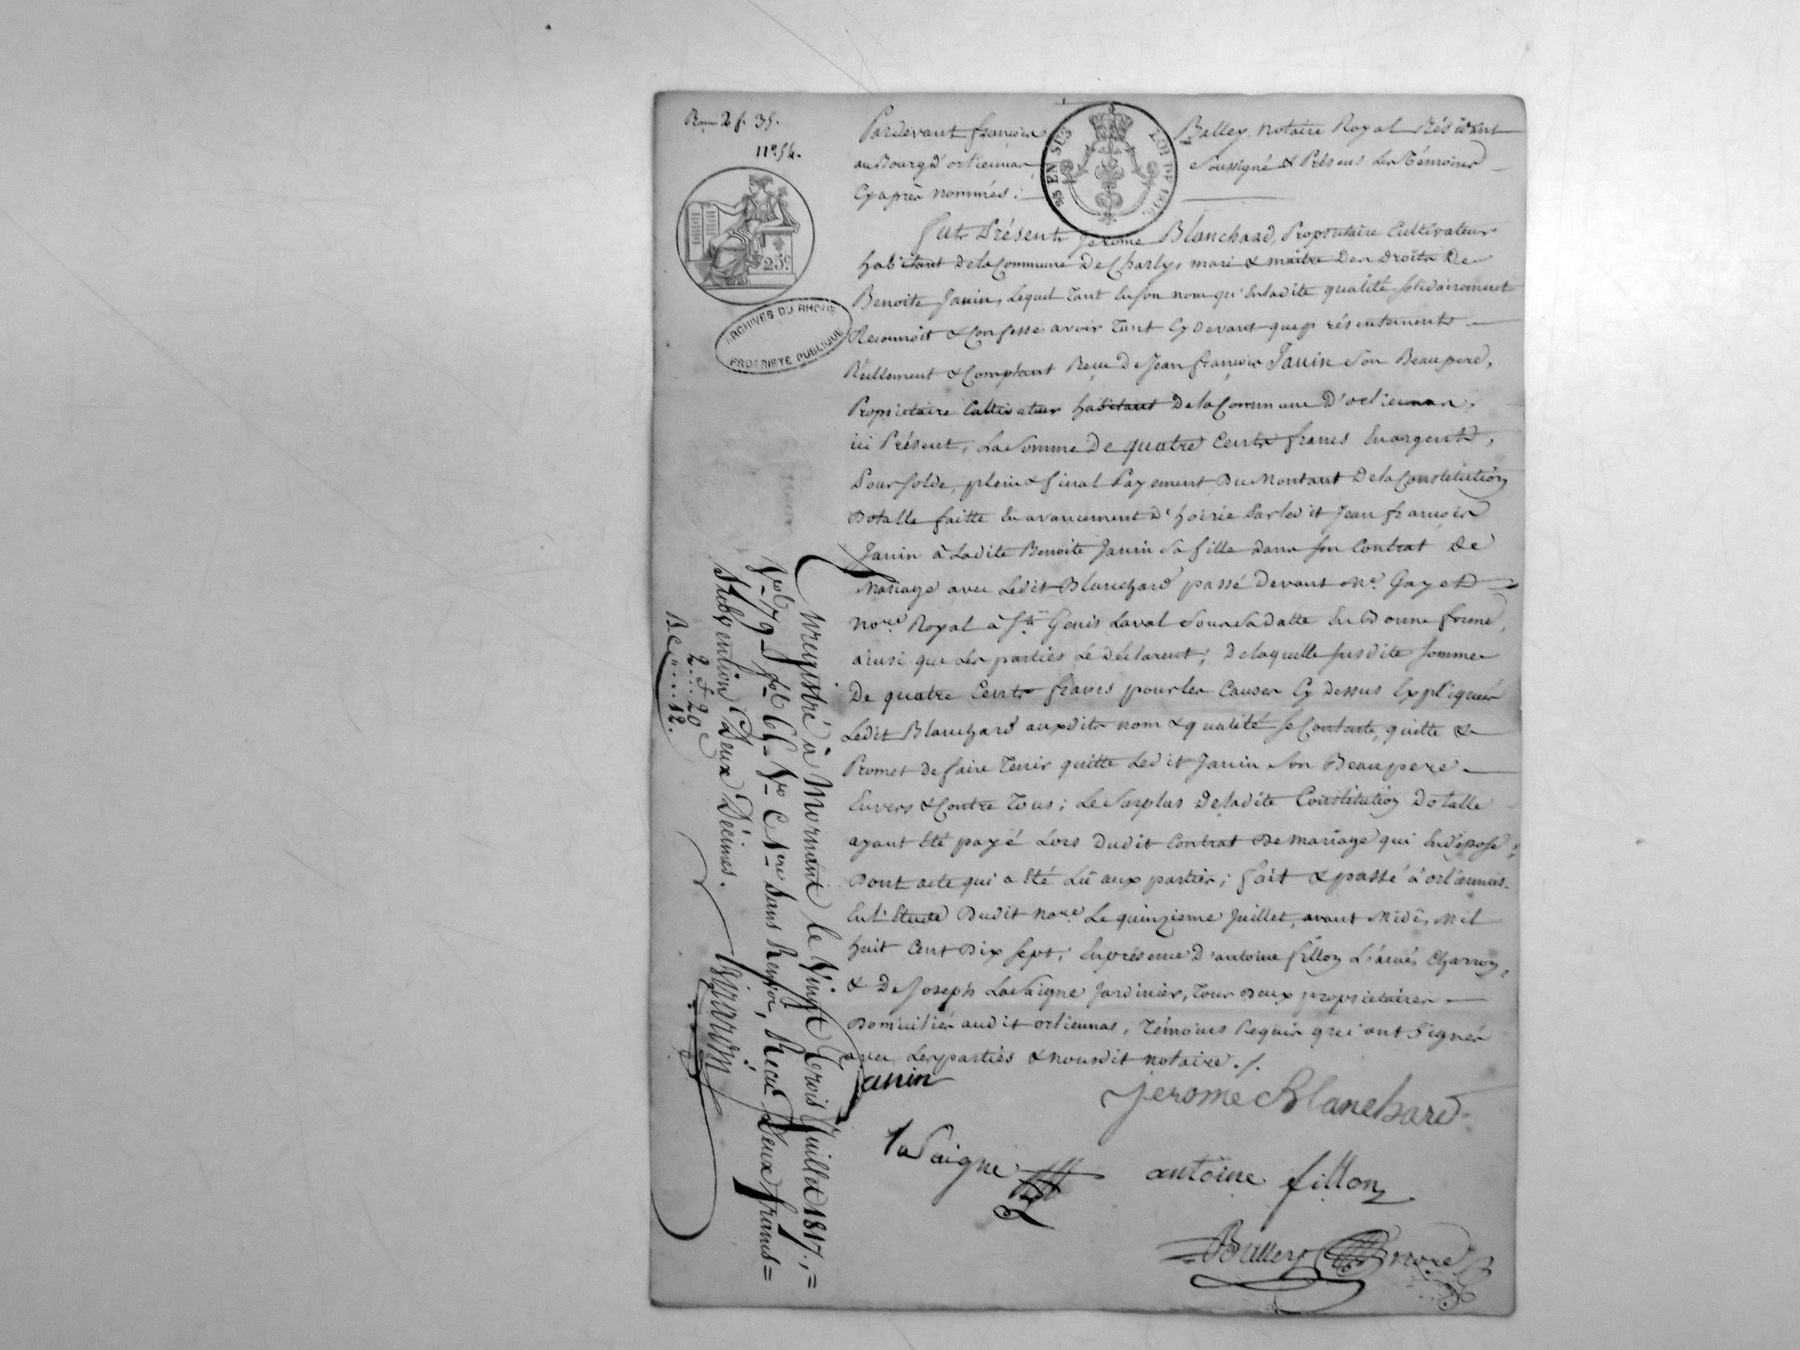 2 f. 35.
n.° 54.
25 c
ARCHIVES DU RHÔNE
PROPRIÉTÉ PUBLIQUE
Pardevant françois Balley, Notaire Royal Résidant
au Bourg d'orliennas, soussigné & Présens les Témoins
Cy après nommés :
25 EN SUS LOI DE 1816
fut Présent Jerome Blanchard, Propriétaire Cultivateur
habitant de la Commune De Charly, mari & maître des droits de
Benoite Janin, lequel tant en son nom qu'en ladite qualité solidairement
Reconnoit & Confesse avoir tant Cy devant que présentement
Réellement & Comptant Reçu de Jean françois Janin son Beaupere,
Propriétaire Cultivateur habitant de la Commune D'orliennas,
ici Présent, La Somme de quatre Cents francs En argent,
Pour solde, plein & final Payement du Montant de la Constitution
Dotalle faitte En avancement d'hoirie Par ledit Jean françois
Janin à Ladite Benoite Janin sa fille dans son Contrat de
Mariage avec Ledit Blanchard passé devant Me. Gayet
Nore. Royal à St. Genis Laval sous sa datte En Bonne forme,
ainsi que les parties Le déclarent ; de laquelle susdite somme
De quatre Cents francs pour les Causes Cy dessus Expliquées
Ledit Blanchard auxdits nom & qualité se Contente, quitte &
Promet de faire Tenir quitte Ledit Janin son Beaupere
Envers & Contre Tous ; Le Surplus de ladite Constitution Dotalle
ayant Eté payé Lors dudit Contrat de mariage qui En dépose ;
Dont acte qui a Eté Lû aux parties ; fait & passé à orliennas
En l'Etude Dudit Nore. Le quinzieme Juillet, avant Midi, Mil
huit Cent Dix sept, En présence D'antoine fillon L'ainé, Charron,
& De Joseph LaSaigne Jardinier, Tous deux propriétaires
Domiciliés audit orliennas, Témoins Requis qui ont Signés
avec Les parties & nousdit notaire ./.
Janin
Jerome Blanchard
laSaigne
antoine fillon
Balley Nore
Enregistré à Mornant le Vingt Trois Juillet 1817., =
Vol. 79 fo. 66 Vo C 1ere Sans Renvoi, Reçu Deux francs =
Subvention Deux Décimes.
2 f. 20 c
12.